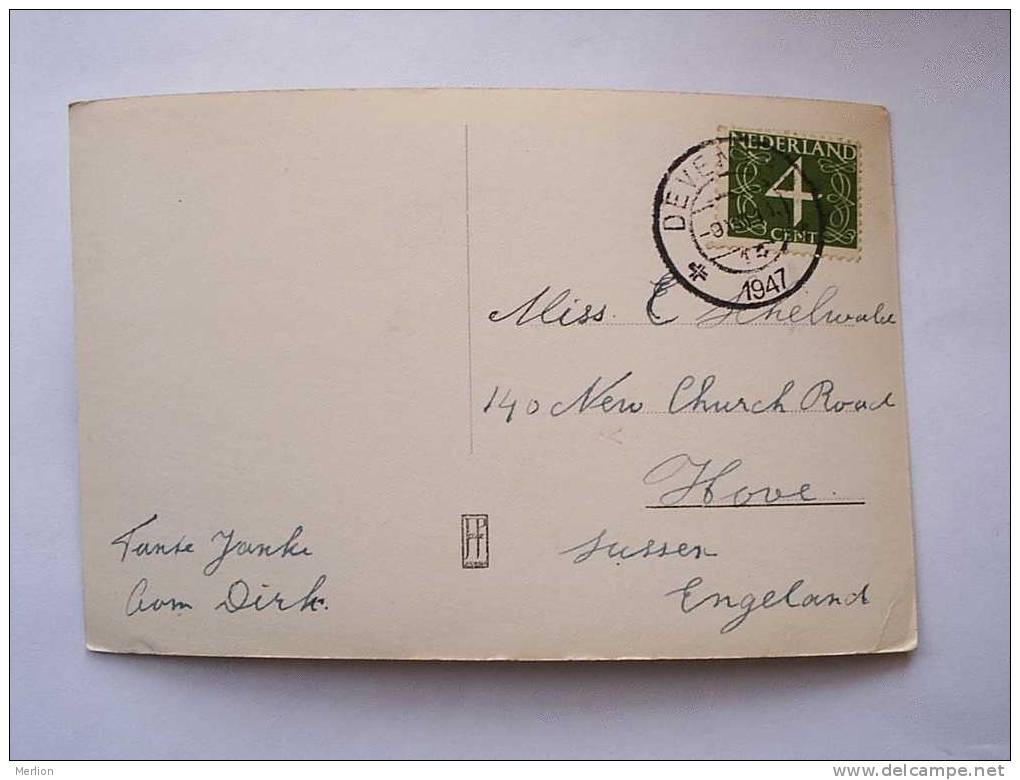 NEDERLAND
4
CENT
DEVEN
1947
Miss. E Schelwald
140 New Church Road
Hove.
Sussex
Engeland
Tante Janke
Oom Dirk.
Merlion
www.delcampe.net